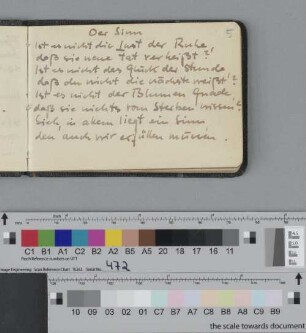 Der Sinn
Ist es nicht die Lust der Ruhe,
daß sie neue Tat verheißt?
Ist es nicht das Glück der Stunde
daß du nicht die nächste weißt?
Ist es nicht der Blumen Gnade
daß sie nichts vom Sterben wissen?
Sieh, in allem liegt ein Sinn
den auch wir erfüllen müssen.
C1 B1 A1 C2 B2 A2 B5 A5 20 18 17 16 11
472
10 09 03 02 01 C7 B7 A7 C8 B8 A8 C9 B9
the scale towards document